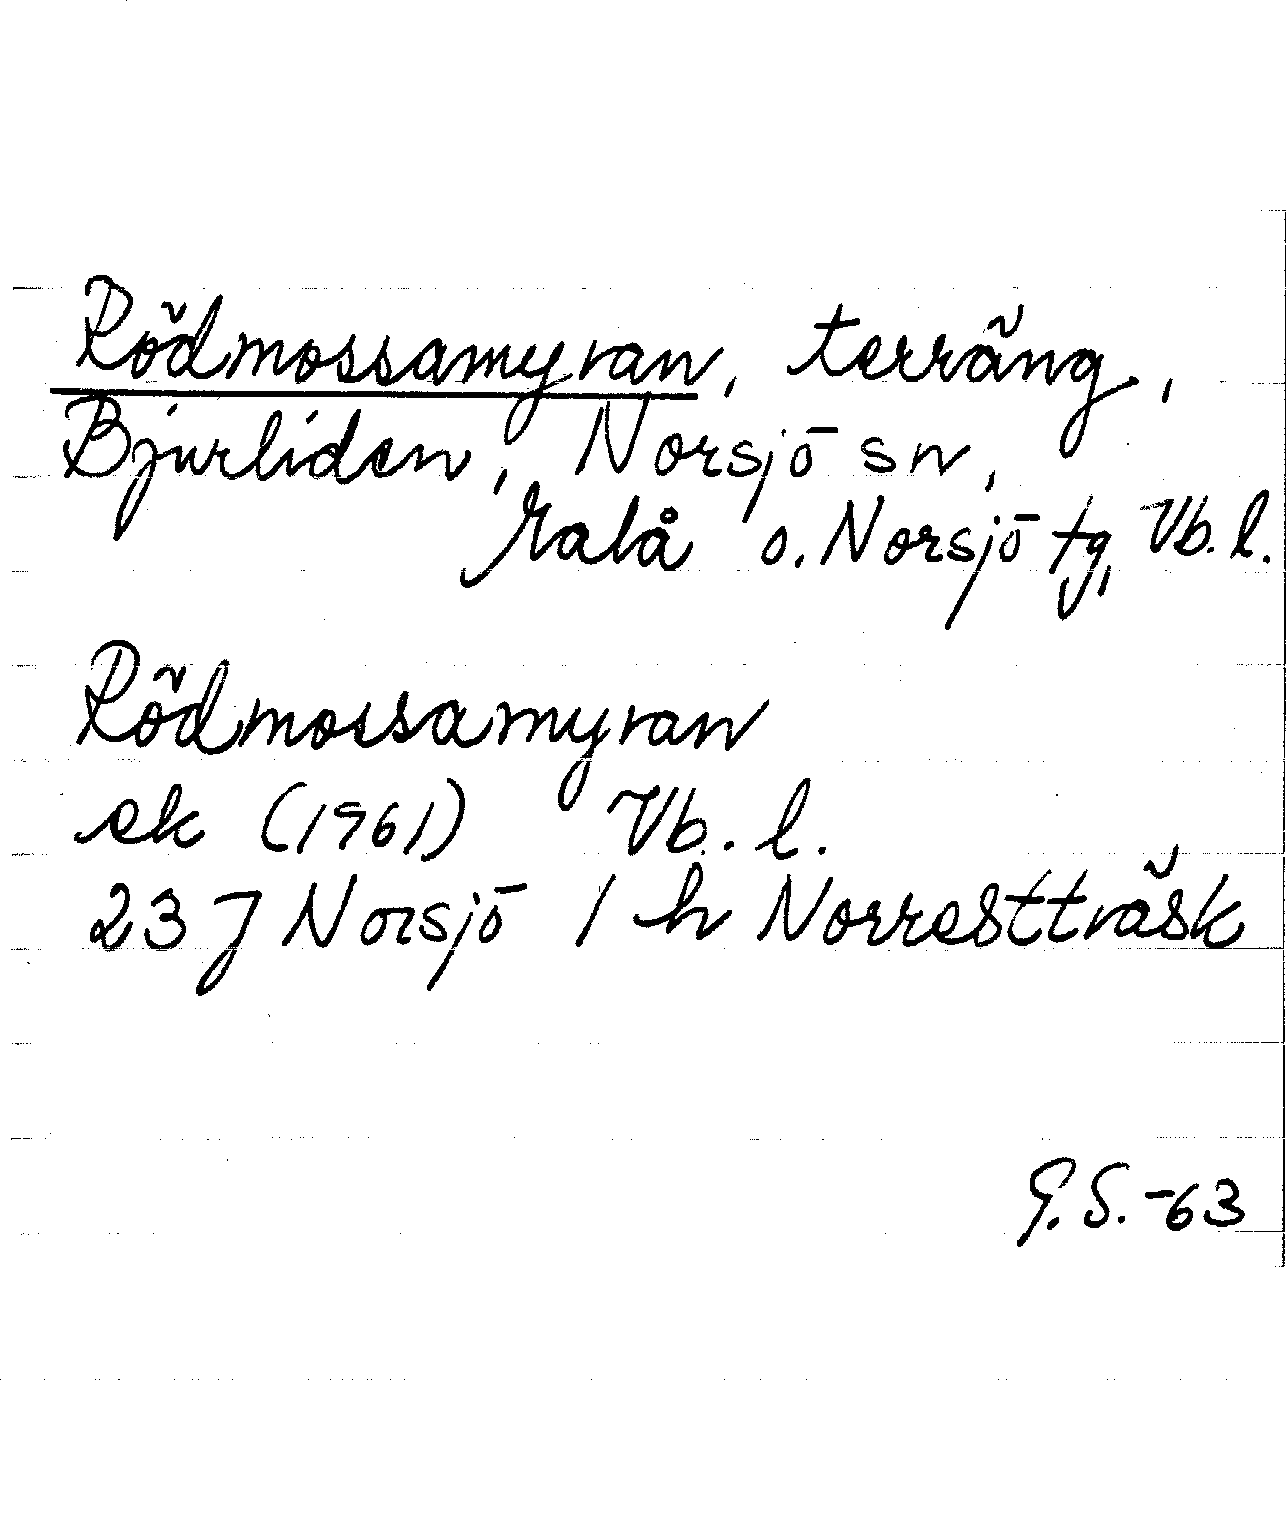 Rödmossamyran, terräng,
Bjurliden, Norsjö sn,
Malå o. Norsjö tg, Vb. l.
Rödmossamyran
ek (1961) Vb. l.
23 J Norsjö 1 h Norrestträsk
G. S. -63